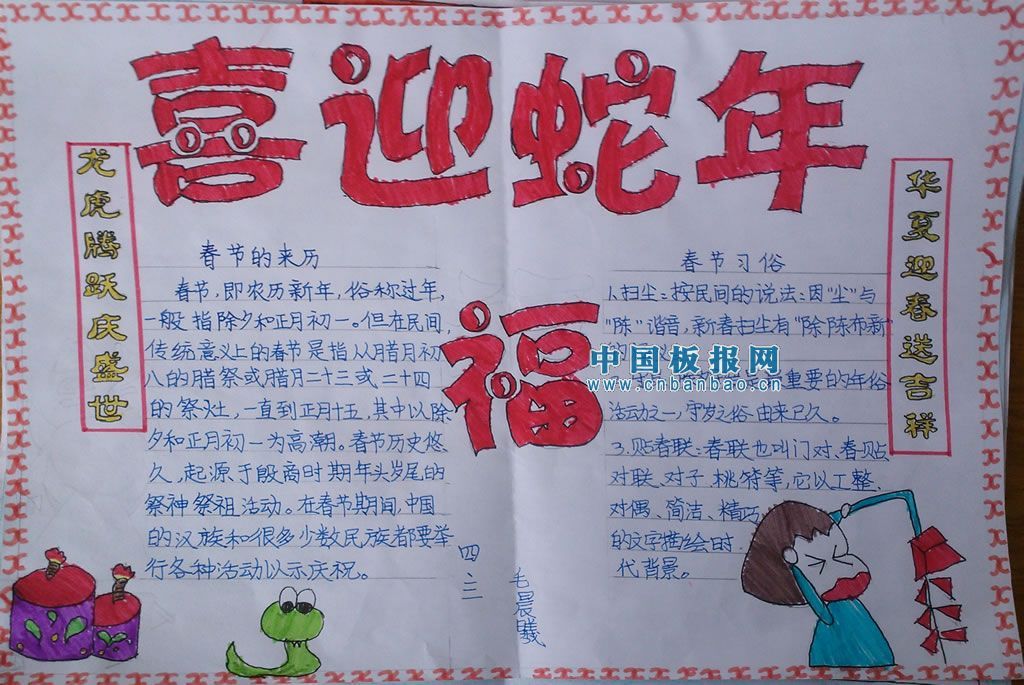 喜迎蛇年
龙虎腾跃庆盛世
华夏迎春送吉祥
春节的来历
春节,即农历新年,俗称过年,
一般指除夕和正月初一。但在民间,
传统意义上的春节是指从腊月初
八的腊祭或腊月二十三或二十四
的祭灶,一直到正月十五,其中以除
夕和正月初一为高潮。春节历史悠
久,起源于殷商时期年头岁尾的
祭神祭祖活动。在春节期间,中国
的汉族和很多少数民族都要举
行各种活动以示庆祝。
福
中国板报网
www.cnbanbao.cn
春节习俗
1.扫尘:按民间的说法:因"尘"与
"陈"谐音,新春扫尘有"除陈布新"
的
重要的年俗
活动之一,守岁之俗由来已久。
3.贴春联:春联也叫门对、春贴
对联、对子、桃符等,它以工整、
对偶、简洁、精巧
的文字描绘时
代背景。
四三
毛晨曦